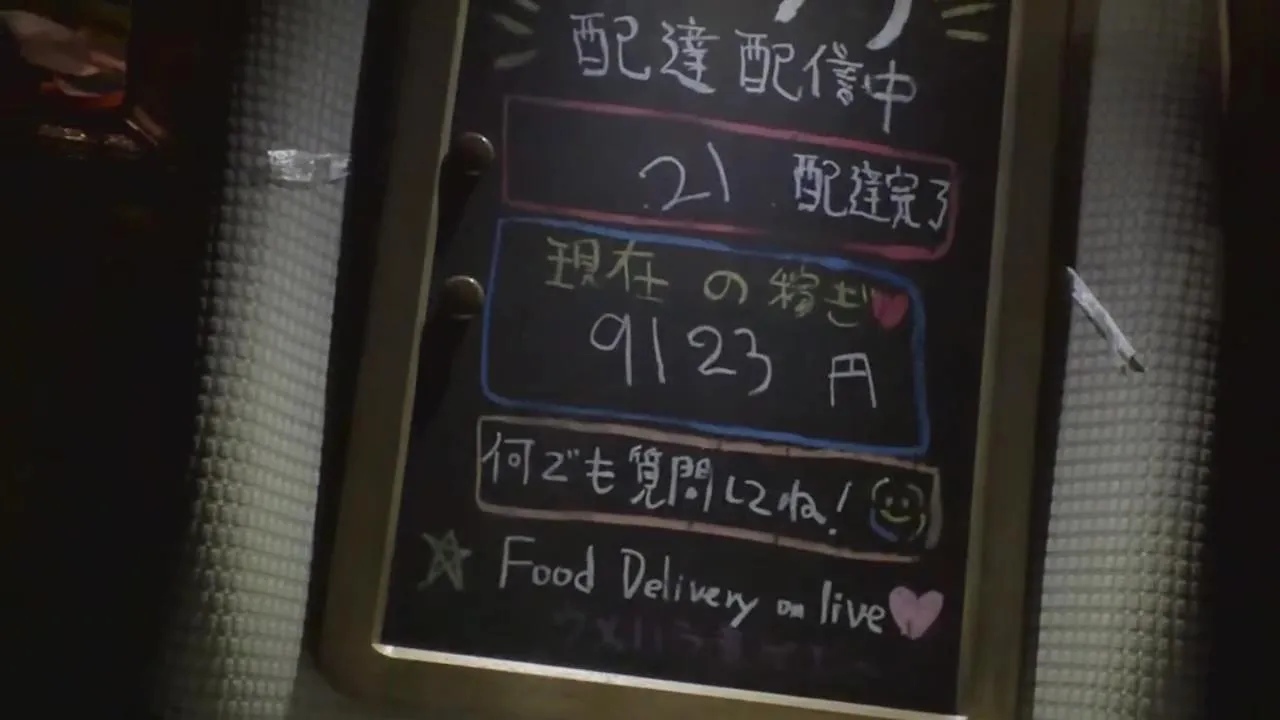 配達配信中
21 配達完了
現在の稼ぎ
9123 円
何でも質問してね!
Food Delivery on live